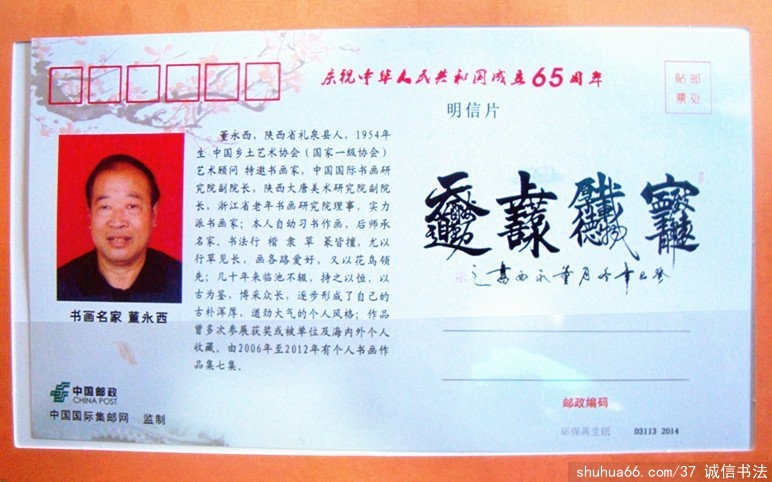 庆祝中华人民共和国成立65周年
贴邮
票处
明信片
董永西，陕西省礼泉县人，1954年
生 中国乡土艺术协会（国家一级协会）
艺术顾问 特邀书画家，中国国际书画研
究院副院长，陕西大唐美术研究院副院
长，浙江省老年书画研究院理事，实力
派书画家；本人自幼习书作画，后师承
名家。书法行 楷 隶 草 篆皆擅，尤以
行草见长，画各路爱好，又以花鸟领
先；几十年来临池不辍，持之以恒，以
古为鉴，博采众长，逐步形成了自己的
古朴浑厚，遒劲大气的个人风格；作品
曾多次参展获奖或被单位及海内外个人
收藏。由2006年至2012年有个人书画作
品集七集。
书画名家 董永西
中国邮政
CHINA POST
中国国际集邮网 监制
邮政编码
环保再生纸 D3113 2014
shuhua66.com/37 诚信书法